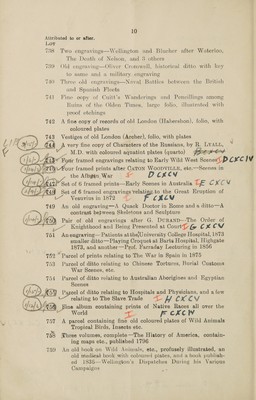 10
Attributed to or after.
LOT
738 Two engravings—Wellington and Blucher after Waterloo,
The Death of Nelson, and 3 others
739 Old engraving—Oliver Cromwell, historical ditto with key
to same and a military engraving
740 Three old engravings—Naval Battles between the British
and Spanish Fleets
741 Fine copy of Cuitt's Wanderings and Pencillings among
Ruins of the Olden Times, large folio, illustrated with
proof etchings
742 A fine copy of records of old London (Habershon), folio, with
coloured plates
743 Vestiges of old London (Archer), folio, with plates
744 A very fine copy of Characters of the Russians, by R. LYALL,
M.D. with coloured aquatint plates (quarto)
Four framed engravings relating to Early Wild West Scenes
Four framed prints after CATON WOODVILLE, etc.—Scenes in
the Afghan War
Set of 6 framed prints—Early Scenes in Australia
748 Set of 6 framed engravings relating to the Great Eruption of
Vesuvius in 1872 F CXLV
749 An old engraving—A Quack Doctor in Rome and a ditto—A
contrast between Skeletons and Sculpture
750 Pair of old engravings after G. DURAND—The Order of
Knighthood and Being Presented at Court
751 An engraving—Patients at the University College Hospital, 1873
smaller ditto—Playing Croquet at Barts Hospital, Highgate
1873, and another—Prof. Farraday Lecturing in 1856
752 Parcel of prints relating to The War in Spain in 1875
753 Parcel of ditto relating to Chinese Tortures, Burial Customs
War Scenes, etc.
754 Parcel of ditto relating to Australian Aborigines and Egyptian
Scenes
Parcel of ditto relating to Hospitals and Physicians, and a few
relating to The Slave Trade H CXCV
Fine album containing prints of Native Races all over the
World
757 A parcel containing fine old coloured plates of Wild Animals
Tropical Birds, Insects etc.
758 Three volumes, complete—The History of America, contain-
ing maps etc., published 1796
759 An old book on Wild Animals, etc., profusely illustrated, an
old medical book with coloured plates, and a book publish-
ed 1835—Wellington's Dispatches During his Various
Campaigns